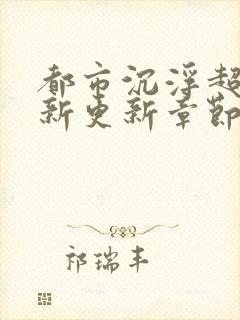 都市沉浮超
新更新章節
祁瑞丰